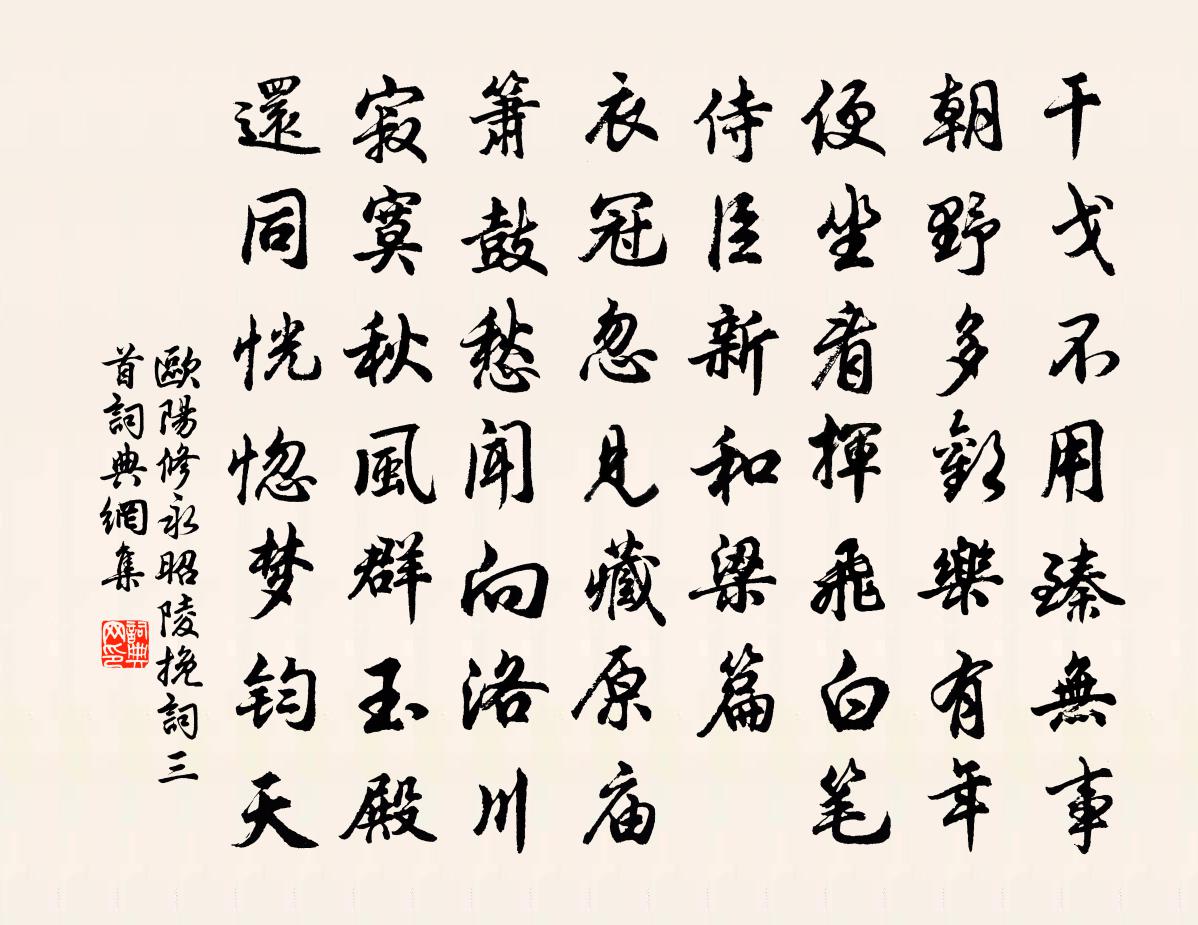 干戈不用臻無事
朝野多歡樂有年
便坐看揮飛白笔
侍臣新和梁篇
衣冠忽見藏原庙
簫鼓愁聞向洛川
寂寞秋風群玉殿
還同恍惚梦钧天
歐陽修永昭陵挽詞三
首詞典網集
詞典
网印